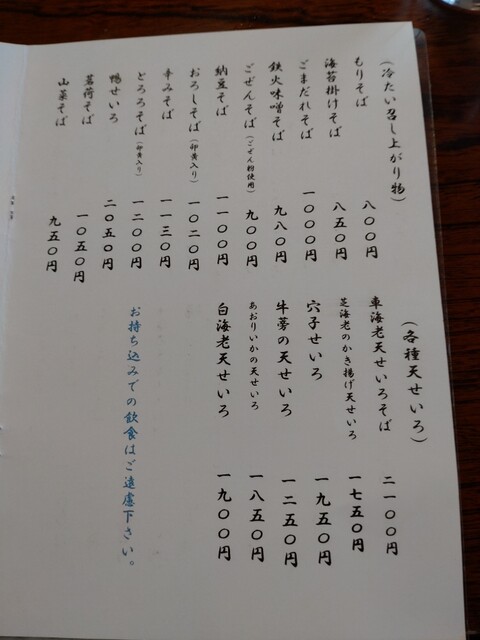 (冷たい召し上がり物)
もりそば 八〇〇円
海苔掛けそば 八五〇円
ごまだれそば 一〇〇〇円
鉄火味噌そば 九八〇円
ごぜんそば(ごぜん粉使用) 九〇〇円
納豆そば 一一〇〇円
おろしそば(卵黄入り) 一〇二〇円
辛みそば 一一三〇円
とろろそば(卵黄入り) 一二〇〇円
鴨せいろ 二〇五〇円
茗荷そば 一〇五〇円
山菜そば 九五〇円
(各種天せいろ)
車海老天せいろそば 二一〇〇円
芝海老のかき揚げ天せいろ 一七五〇円
穴子せいろ 一九五〇円
牛蒡の天せいろ 一二五〇円
あおりいかの天せいろ 一八五〇円
白海老天せいろ 一九〇〇円
お持ち込みでの飲食はご遠慮下さい。